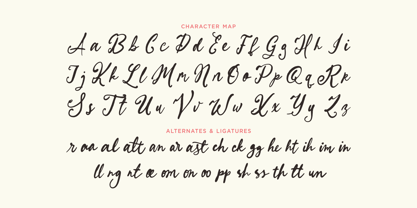 CHARACTER MAP
Aa Bb Cc Dd Ee Ff Gg Hh Ii
Jj Kk Ll Mm Nn Oo Pp Qq Rr
Ss Tt Uu Vv Ww Xx Yy Zz
ALTERNATES & LIGATURES
r oa al alt an ar ast ch ck gg he ht ih im in
ll ng nt œ om on oo pp sh ss th tt un